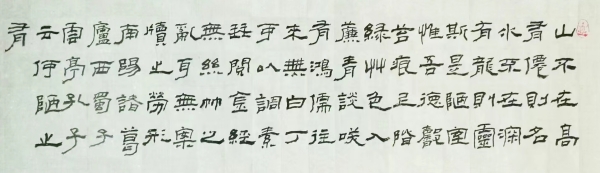 山不在高
有僊則名
水不在深
有龍則靈
斯是陋室
惟吾德馨
苔痕上階
綠艸色入
簾青談咲
有鴻儒往
来無白丁
可以調素
琴閱金經
無絲竹之
亂耳無案
牘之勞形
南陽諸葛
廬西蜀子
雲亭孔子
云何陋之
有